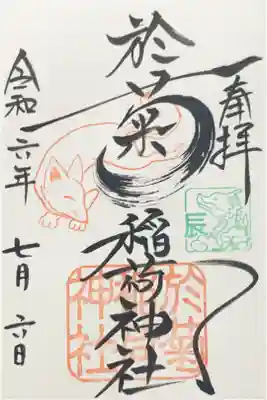 奉拝
於菊
稲荷神社
令和六年
七月六日
辰
於菊稲荷神社